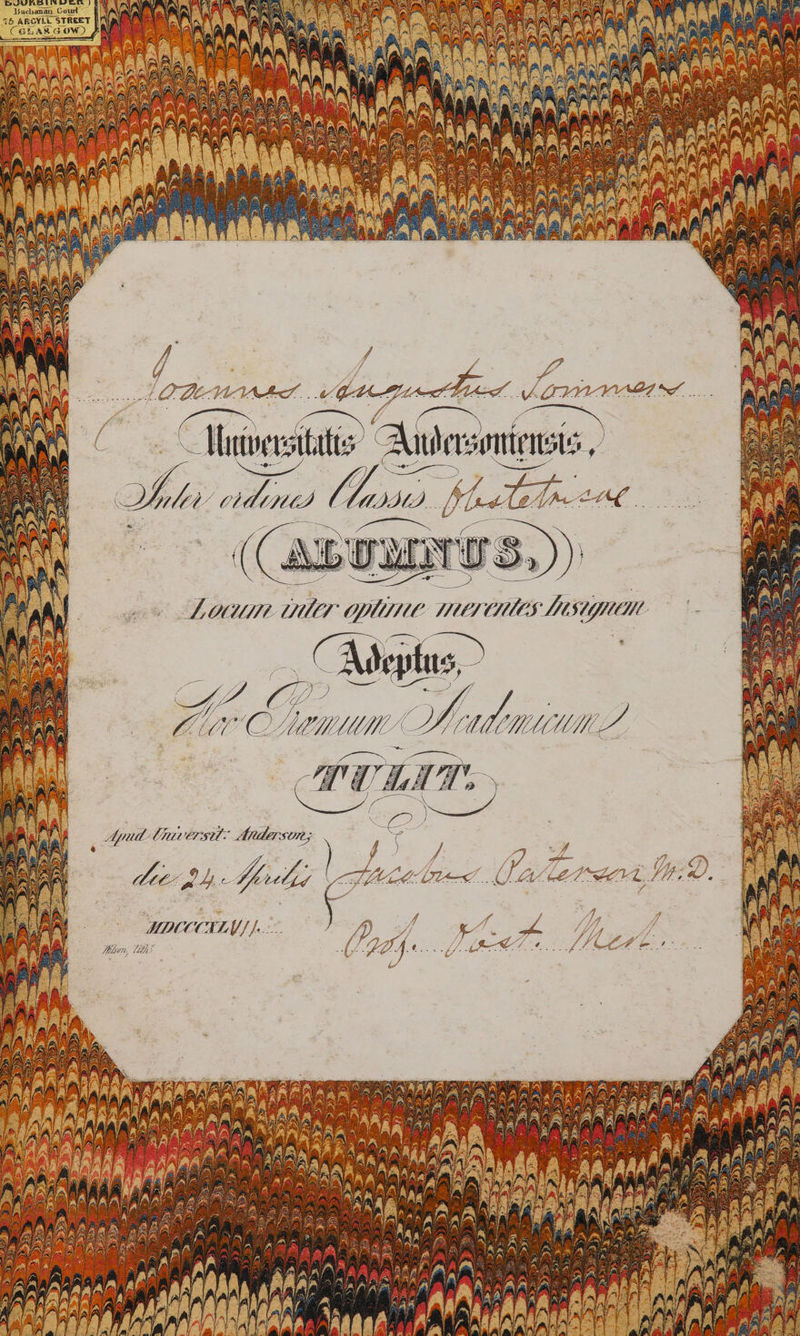 BOOKBINDER
Buchanan Court
75 ARGYLL STREET
(GLASGOW)
Joannes Augustus Sommers
Universitatis Andersoniensis,
Inter ordines Classis Obstetricae
ALUMNUS,
Locum inter optime merentes Insignem
Adeptus,
Hoc Præmium Academicum
TULIT.
Apud Universit: Anderson;
die 24 Aprilis
MDCCCXLVII.
Jacobus Paterson, M.D.
Prof. Obst. Med.
Wilson, Lith: